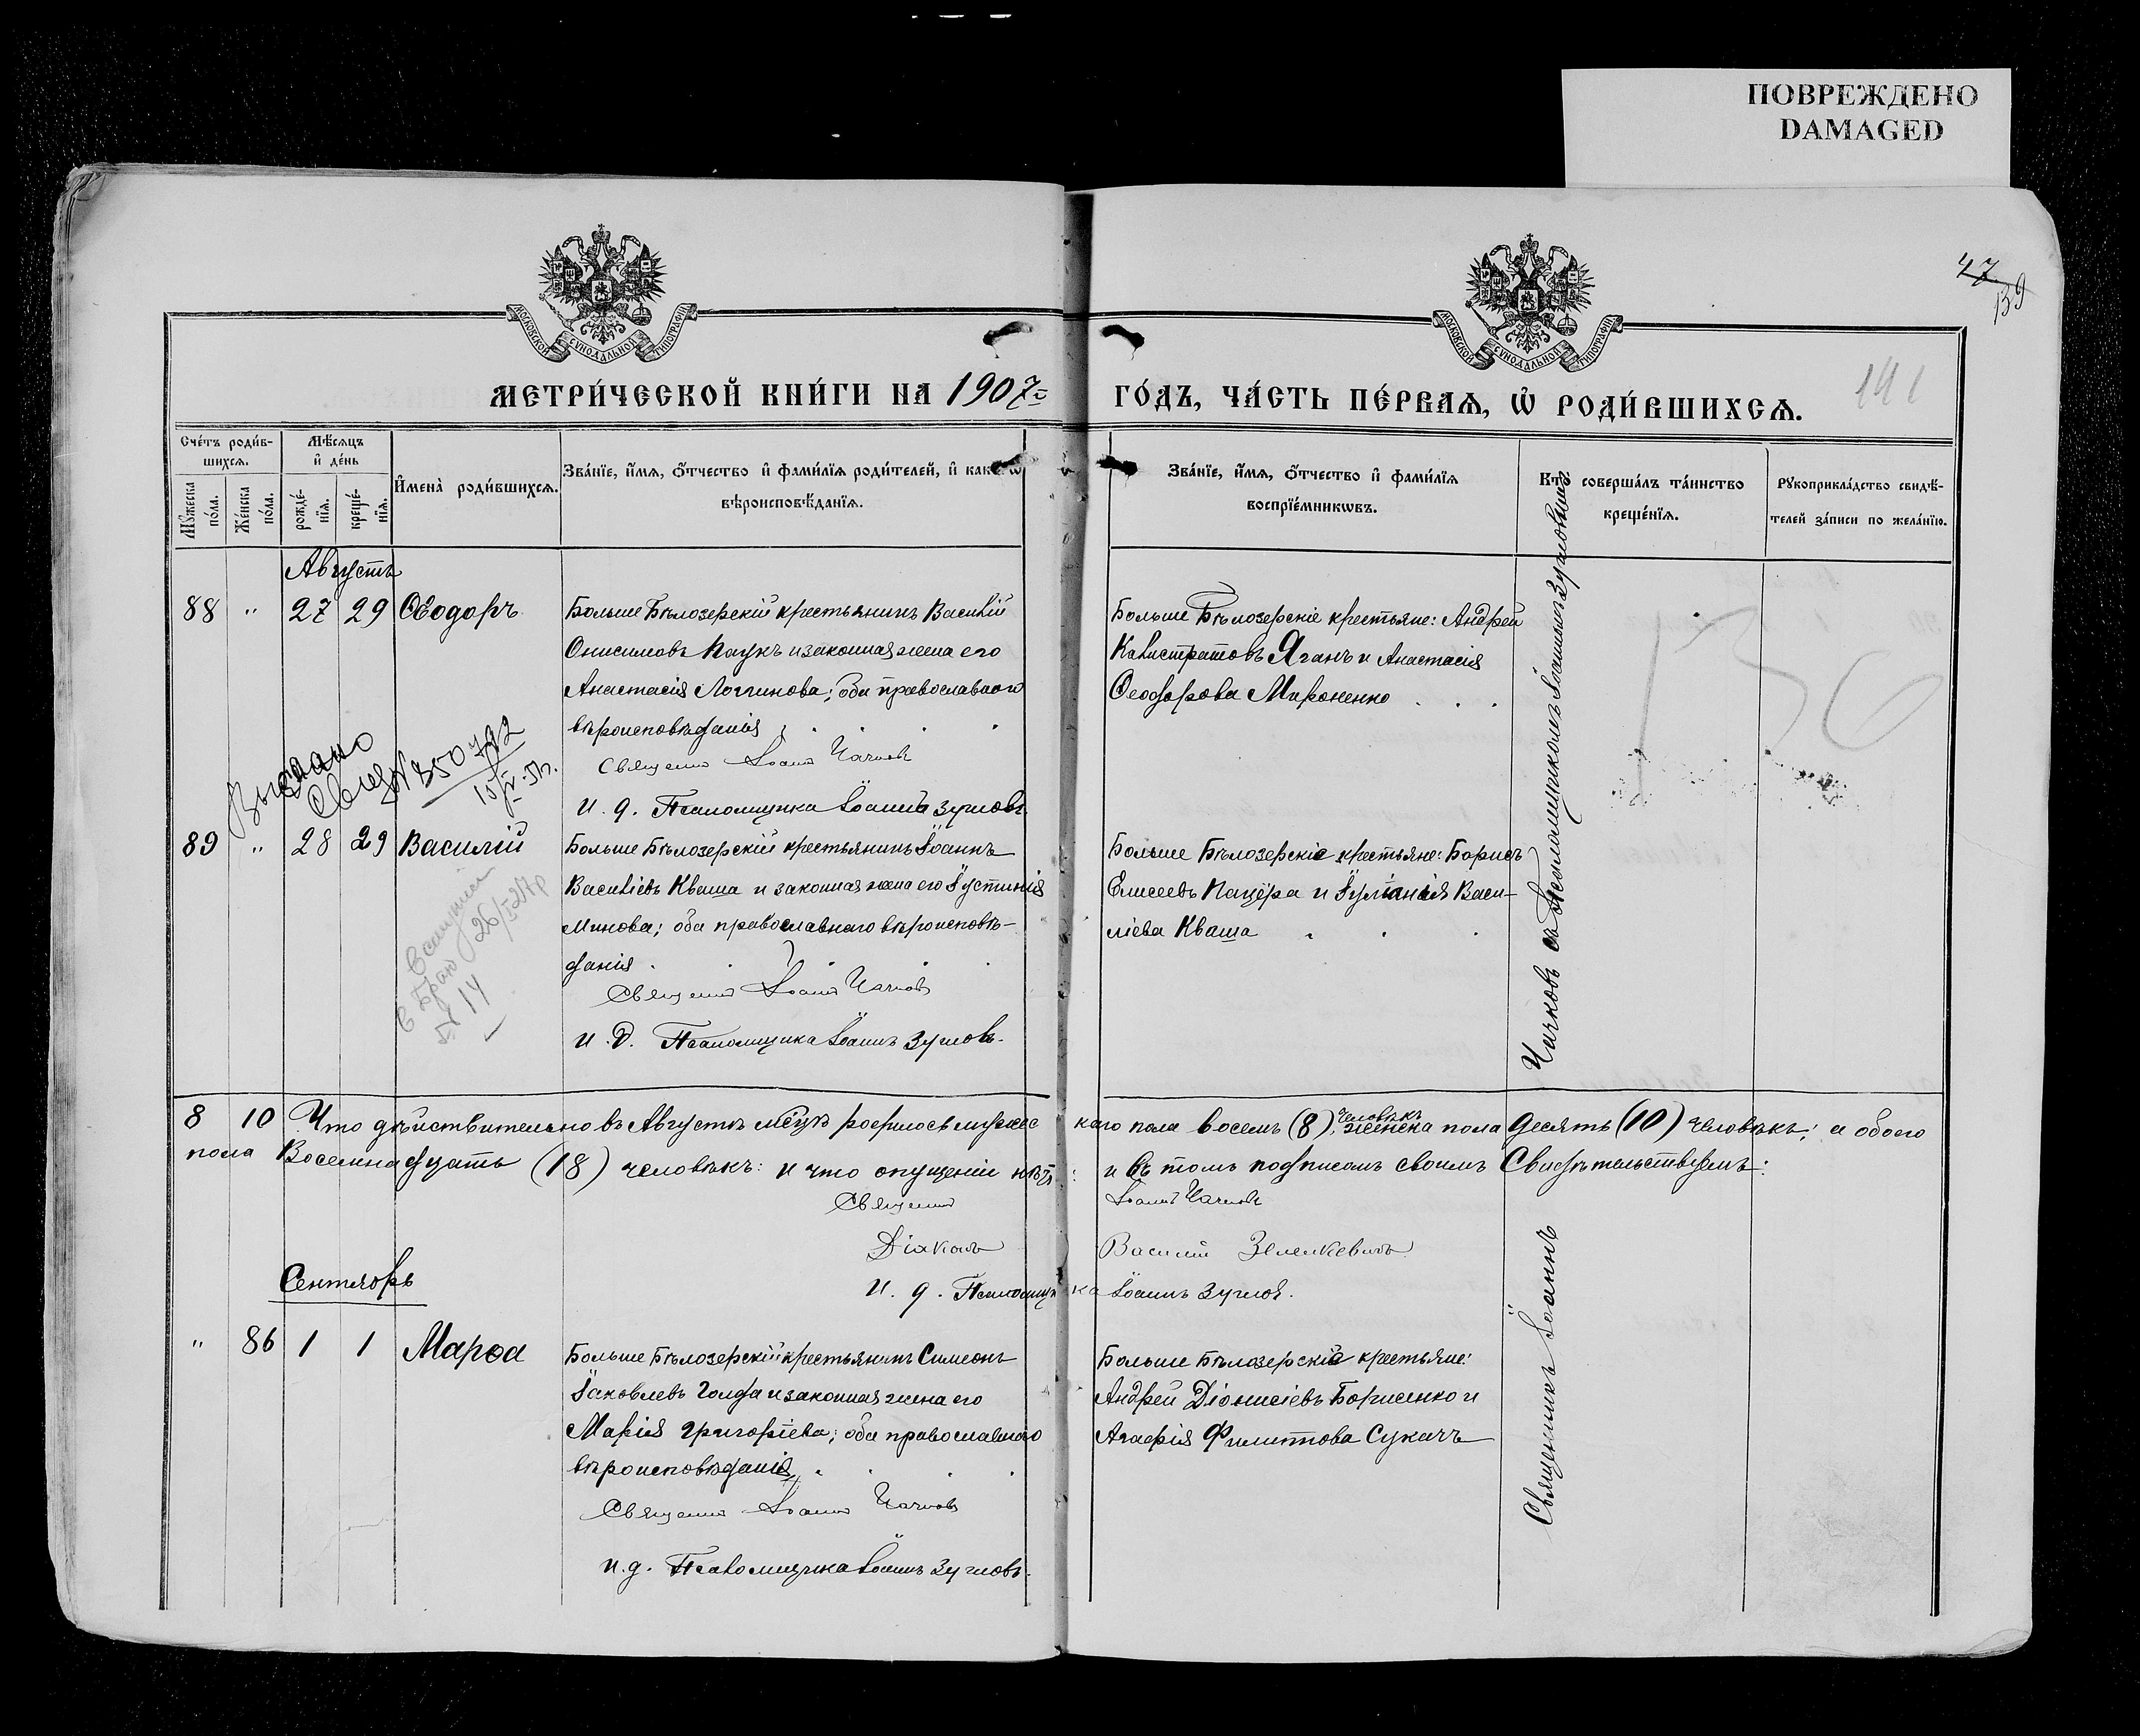 ПОВРЕЖДЕНО
DAMAGED
47
139
141
МОСКОВСКОЙ СѴНОДАЛЬНОЙ ТИПОГРАФІИ
МОСКОВСКОЙ СѴНОДАЛЬНОЙ ТИПОГРАФІИ
МЕТРИ́ЧЕСКОЙ КНИ́ГИ НА 1907 г. ГО́ДЪ, ЧА́СТЬ ПЕ́РВАѦ, Ѡ҆ РОДИ́ВШИХСѦ.
Сче́тъ роди́в-
шихсѧ.
Мѣ́сѧцъ
и҆ де́нь
Мꙋ́жеска по́ла.
Же́нска по́ла.
рожде́-
нїѧ.
креще́-
нїѧ.
И҆мена̀ роди́вшихсѧ.
Зва́нїе, и҆́мѧ, ѻ҆́тчество и҆ фами́лїѧ роди́телей, и҆ како́гѡ
вѣроисповѣ́данїѧ.
Зва́нїе, и҆́мѧ, ѻ҆́тчество и҆ фами́лїѧ
воспрїе́мникѡвъ.
Кто̀ соверша́лъ та́инство
креще́нїѧ.
Рꙋкоприкла́дство свидѣ́-
телей за́писи по жела́нїю.
Августъ
88 " 27 29 Ѳеодоръ
Больше Бѣлозерскій крестьянинъ Василій
Онисимовъ Паукъ и законная жена его
Анастасія Логгинова; оба православнаго
вѣроисповѣданія
Священник Іоанн Чачков
и. д. Псаломщика Іоаннъ Зугловъ
Больше Бѣлозерскіе крестьяне: Андрей
Калистратовъ Яганъ и Анастасія
Ѳеодорова Мироненко
136
Выслано
Свид. № 350792
89 " 28 29 Василій
Больше Бѣлозерскій крестьянинъ Іоаннъ
Василіевъ Кваша и законная жена его Іустинія
Минова; оба православнаго вѣроисповѣ-
данія
Священник Іоанн Чачков
и. д. Псаломщика Іоаннъ Зугловъ.
Больше Бѣлозерскіе крестьяне: Борисъ
Елисеевъ Пацёра и Іуліанія Васи-
ліева Кваша
в брак 26/I 27 р
№ 14
8 10 Что дѣйствительно въ Августѣ мѣсяцѣ родилось мужескаго пола восемь (8) человѣкъ, женска пола десять (10) человѣкъ; а обоего
пола Восемнадцать (18) человѣкъ: и что опущеній нѣтъ: и въ томъ подписомъ своимъ Свидѣтельствуемъ:
Священник Іоанн Чачков
Діаконъ Василій Зелинкевичъ
И. д. Псаломщика Іоаннъ Зуглов.
Сентябрь
" 86 1 1 Марѳа
Больше Бѣлозерскій крестьянинъ Симеонъ
Іаковлевъ Голда и законная жена его
Марія Григоріева; оба православнаго
вѣроисповѣданія
Священник Іоанн Чачков
и. д. Псаломщика Іоаннъ Зугловъ.
Больше Бѣлозерскіе крестьяне:
Андрей Діонисіевъ Борисенко и
Агафія Филиппова Сукачъ
Священникъ Іоаннъ
Чачковъ съ Псаломщикомъ Іоанномъ Зугловымъ